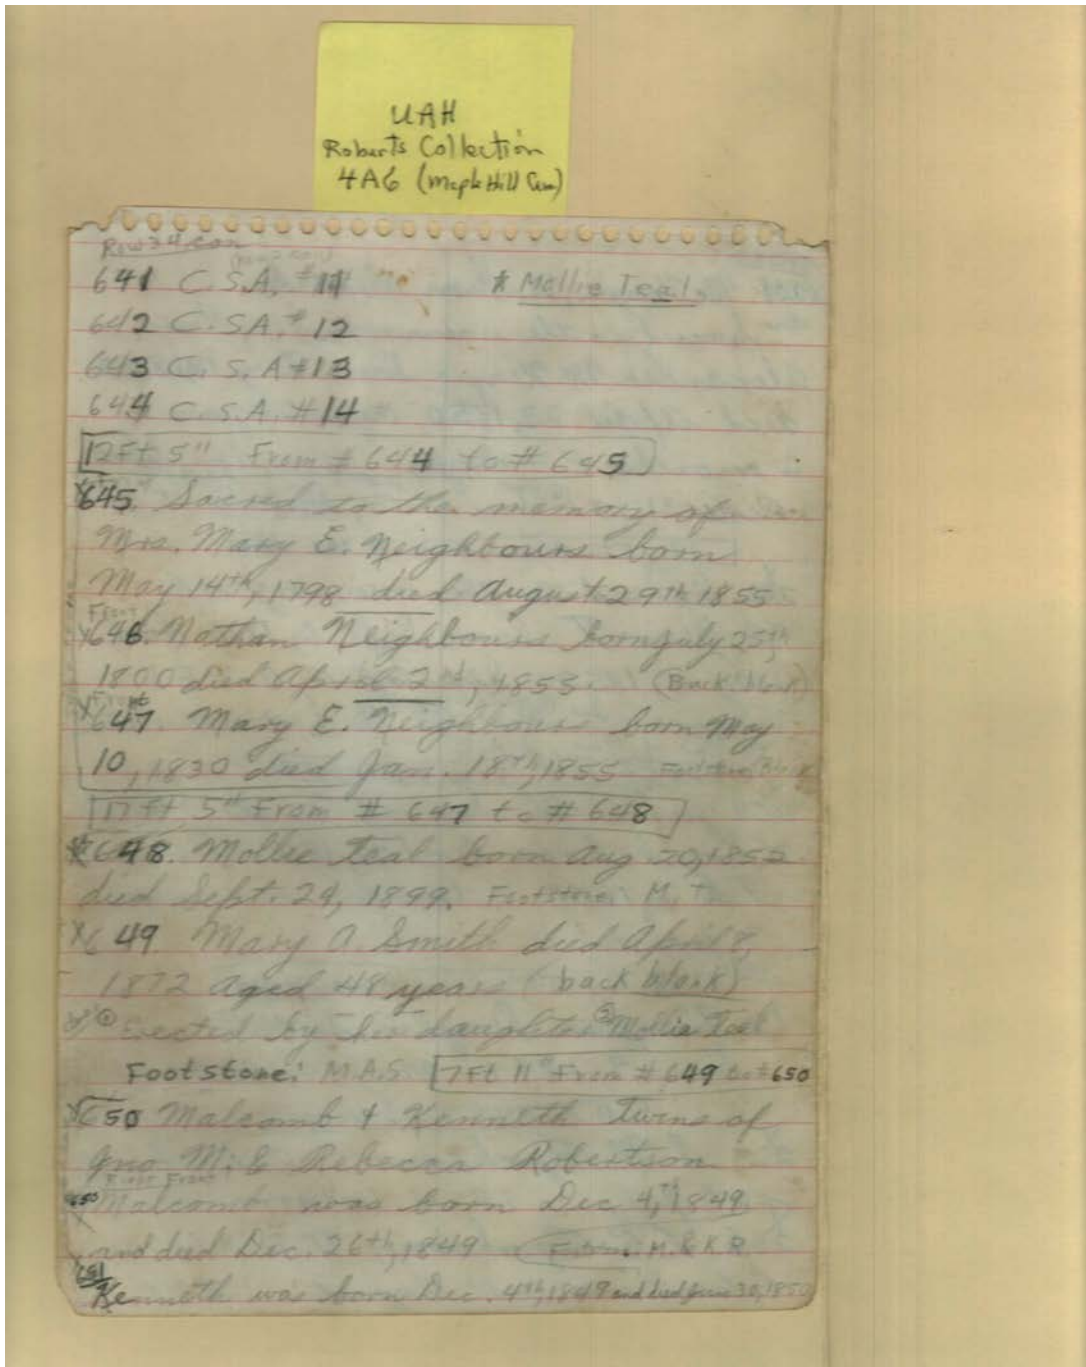 UAH
Roberts Collection
4A6 (Maple Hill Cem)
Row 34 con
641 C.S.A. #11 * Mollie Teal
642 C.S.A. #12
643 C.S.A #13
644 C.S.A. #14
12Ft 5" From # 644 to # 645
X645. Sacred to the memory of
Mrs. Mary E. Neighbours born
May 14th, 1798 died August 29th 1855
Front
X646. Nathan Neighbours born July 25th
1800 died April 2nd, 1853. (Back:
Front
X647. Mary E. Neighbours born May
10, 1830 died Jan. 18th, 1855 Footstone Blank
17 ft 5" From # 647 to # 648
*648. Mollie Teal born Aug 20, 1852
died Sept. 29, 1899. Footstone: M. T.
X649. Mary A Smith died April 8,
1872 aged 48 years (back blank)
Erected by her daughter Mollie Teal
Footstone: M.A.S 7Ft 11" From # 649 to #650
X650 Malcomb & Kenneth Twins of
Jno M. & Rebecca Robertson
Front
650 Malcomb was born Dec 4th, 1849
and died Dec. 26th, 1849 M. & K R
651
Kenneth was born Dec. 4th, 1849 and died June 30, 1850